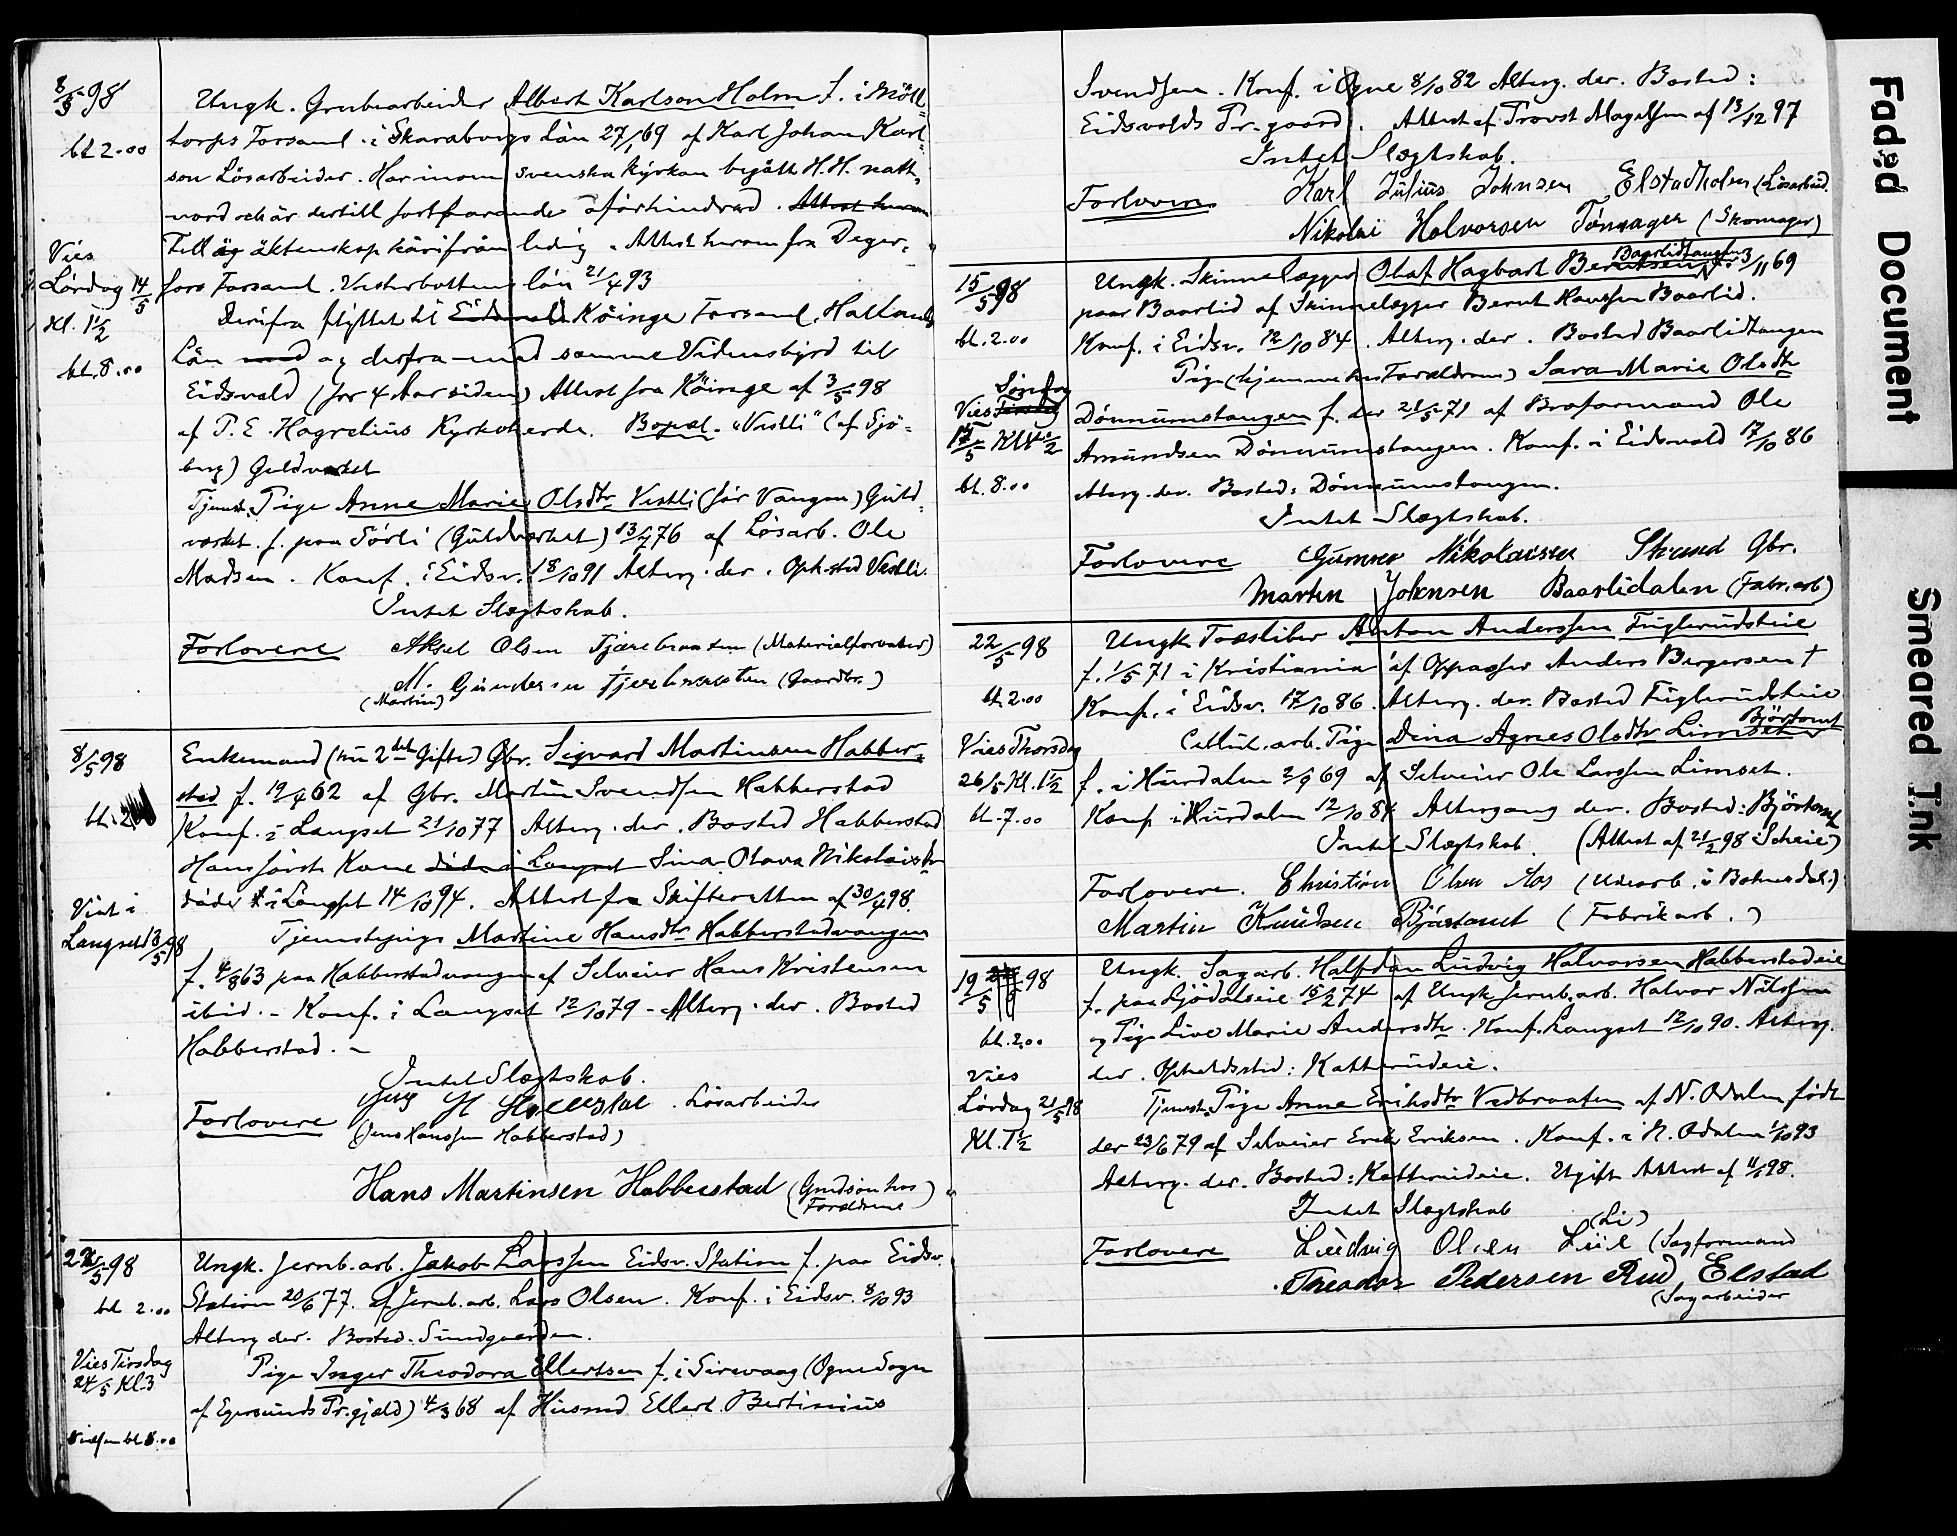 8/5 98
bt 2.00
Vies
Lørdag 14/5
Kl. 1 1/2
bt. 8.00
Ungk. Grubearbeider Albert Karlson Holm f. i Möll-
torps Forsaml. i Skaraborgs Län 27/1 69 af Karl Johan Karl-
son Lösarbeider. Har inom svenska Kyrkan begått H. H. natt-
vard och är dertill fortfarande oförhindrad. Attest herom
Till äg äktenskap härifrån ledig. Attest herom fra Deger-
fors Forsaml. Vesterbottens län 21/4 93
Derifra flyttet til Eidsvold Köinge Forsaml. Hallands
Län med og derfra med samme Vidnesbyrd til
Eidsvold (for 4 Aar siden) Attest fra Köinge af 3/5 98
af P. E. Hagrelius Kyrkoherde. Bopæl. "Vestli" (af Sjö-
berg) Guldverket
Tjenest. Pige Anne Marie Olsdtr Vestli (før Vangen) Guld-
verket. f. paa Sörli (Guldverket) 13/4 76 af Lösarb. Ole
Madsen. Konf. i Eidsv. 18/10 91 Alterg. der. Oph.sted Vestli.
Intet Slægtskab.
Forlovere Aksel Olsen Tjærebraaten (Materialforvalter)
M. Gundersen Tjærebraaten (Gaardbr.)
(Martin)
8/5 98
bt. 2
Viet i
Langset 13/5 98
Enkemand (nu 2det Gifte) Gbr. Sigvard Martinsen Habber-
stad f. 19/4 62 af Gbr. Martin Svendsen Habberstad
Konf. i Langset 21/10 77 Alterg. der. Bosted Habberstad
Hans første Kone døde i Langset Sina Olava Nikolaisdtr
døde i Langset 14/10 94. Attest fra Skifteretten af 30/4 98.
Tjenestepige Martine Hansdtr Habberstadvangen
f. 4/8 63 paa Habberstadvangen af Selveier Hans Kristensen
ibid. - Konf. i Langset 12/10 79 - Alterg. der. Bosted
Habberstad. -
Intet Slægtskab.
Forlovere Jens H Habberstad. Lösarbeider
(Jens Hanssen Habberstad)
Hans Martinsen Habberstad (Grdsön hos
Forældrene)
22/5 98
bt 2.00
Vies Tirsdag
24/5 Kl. 3
bt 8.00
Ungk. Jernb.arb. Jakob Larssen Eidsv. Station f. paa Eidsv.
Station 20/6 77. af Jernb.arb. Lars Olsen. Konf. i Eidsv. 8/10 93
Alterg der. Bosted. Sundgaarden.
Pige Inger Theodora Ellertsen f. i Sirevaag (Ogne Sogn
af Egersunds Pr.gjæld) 4/3 68 af Husmd Ellert Bertinius
Svendsen. Konf. i Ogne 8/10 82 Alterg. der. Bosted:
Eidsvolds Pr.gaard. Attest af Provst Magelssen af 13/12 97
Intet Slægtskab.
Forlovere Karl Julius Johnsen Elstadholen (Lösarbeid.
Nikolai Halvorsen Tönsager (Skomager)
15/5 98
bt. 2.00
Søndag
Vies Tirsdag
15/5 Kl 1 1/2
bt. 8.00
Baarlidtangen
Ungk. Skinnelægger Olaf Hagbart Berntsen f. 3/11 69
paa Baarlid af Skinnelægger Bernt Hanssen Baarlid.
Konf. i Eidsv. 12/10 84. Alterg. der. Bosted Baarlidtangen
Pige (hjemme hos Forældrene) Sara Marie Olsdtr
Dönnumstangen f. der 21/5 71 af Broformand Ole
Amundsen Dönnumstangen. Konf. i Eidsvold 17/10 86
Alterg. der. Bosted: Dönnumstangen.
Intet Slægtskab.
Forlovere Gunner Nikolaisen Strand Gbr.
Martin Johnsen Baarlidalen (Fabr.arb)
22/5 98
bt. 2.00
Vies Thorsdag
26/5 Kl. 1 1/2
bt. 7.00
Ungk Træsliber Anton Anderssen Fuglerudseie
f. 1/5 71 i Kristiania af Oppasser Anders Bergersen †
Konf. i Eidsv. 17/10 86. Alterg. der. Bosted Fuglerudseie
Björtomt
Cellul.arb. Pige Dina Agnes Olsdtr Limset
f. i Hurdalen 2/9 69 af Selveier Ole Larssen Limset.
Konf i Hurdalen 12/10 84 Altergang der. Bosted: Björtomt
Intet Slægtskab. (Attest af 21/2 98 Scheie)
Forlovere. Christian Olsen Aas (Udearb. i Bohnsdal.)
Martin Knudsen Bjørtomt (Fabrikarb.)
19/5 98
bt. 2.00
Vies
Lørdag 21/5 98
Kl. 1 1/2
Ungk. Sagarb. Halfdan Ludvig Halvorsen Habberstadeie
f. paa Sjödalseie 15/2 74 af Ungk Jernb.arb. Halvor Nilssen
og Pige Live Marie Andersdtr. Konf. Langset 12/10 90. Alterg.
der. Opholdssted: Katterudeie.
Tjenest. Pige Anne Eriksdtr Vedbraaten af N. Odalen født
der 23/6 79 af Selveier Erik Eriksen. Konf. i N. Odalen 1/10 93
Alterg. der. Bosted: Katterudeie. Ugift Attest af 11/1 98.
Intet Slægtskab
(Li)
Forlovere Ludvig Olsen Liie (Sagformand
Theodor Pedersen Rud, Elstad
(Sagarbeider
Faded Document
Smeared Ink